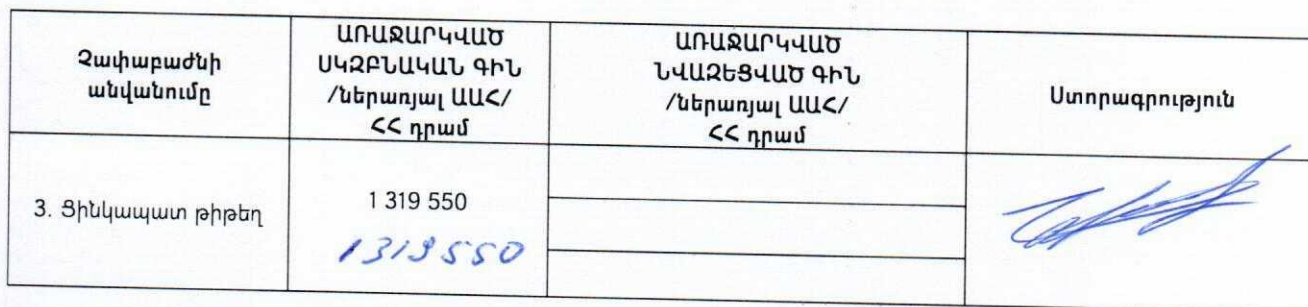 Չափաբաժնի
անվանումը
ԱՌԱՋԱՐԿՎԱԾ
ՍԿԶԲՆԱԿԱՆ ԳԻՆ
/ներառյալ ԱԱՀ/
ՀՀ դրամ
ԱՌԱՋԱՐԿՎԱԾ
ՆՎԱԶԵՑՎԱԾ ԳԻՆ
/ներառյալ ԱԱՀ/
ՀՀ դրամ
Ստորագրություն
3. Ցինկապատ թիթեղ
1 319 550
1319550